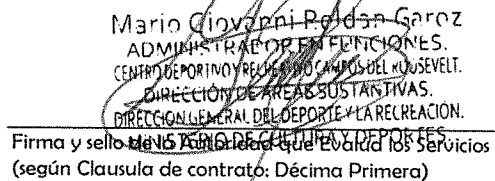 Mario Giovanni Roldan Garoz
ADMINISTRADOR EN FUNCIONES.
CENTRO DEPORTIVO Y RECREATIVO CAMPOS DEL ROOSEVELT.
DIRECCIÓN DE AREAS SUSTANTIVAS.
DIRECCION GENERAL DEL DEPORTE Y LA RECREACIÓN.
MINISTERIO DE CULTURA Y DEPORTES
Firma y sello de la Autoridad que Evaluó los Servicios
(según Clausula de contrato: Décima Primera)